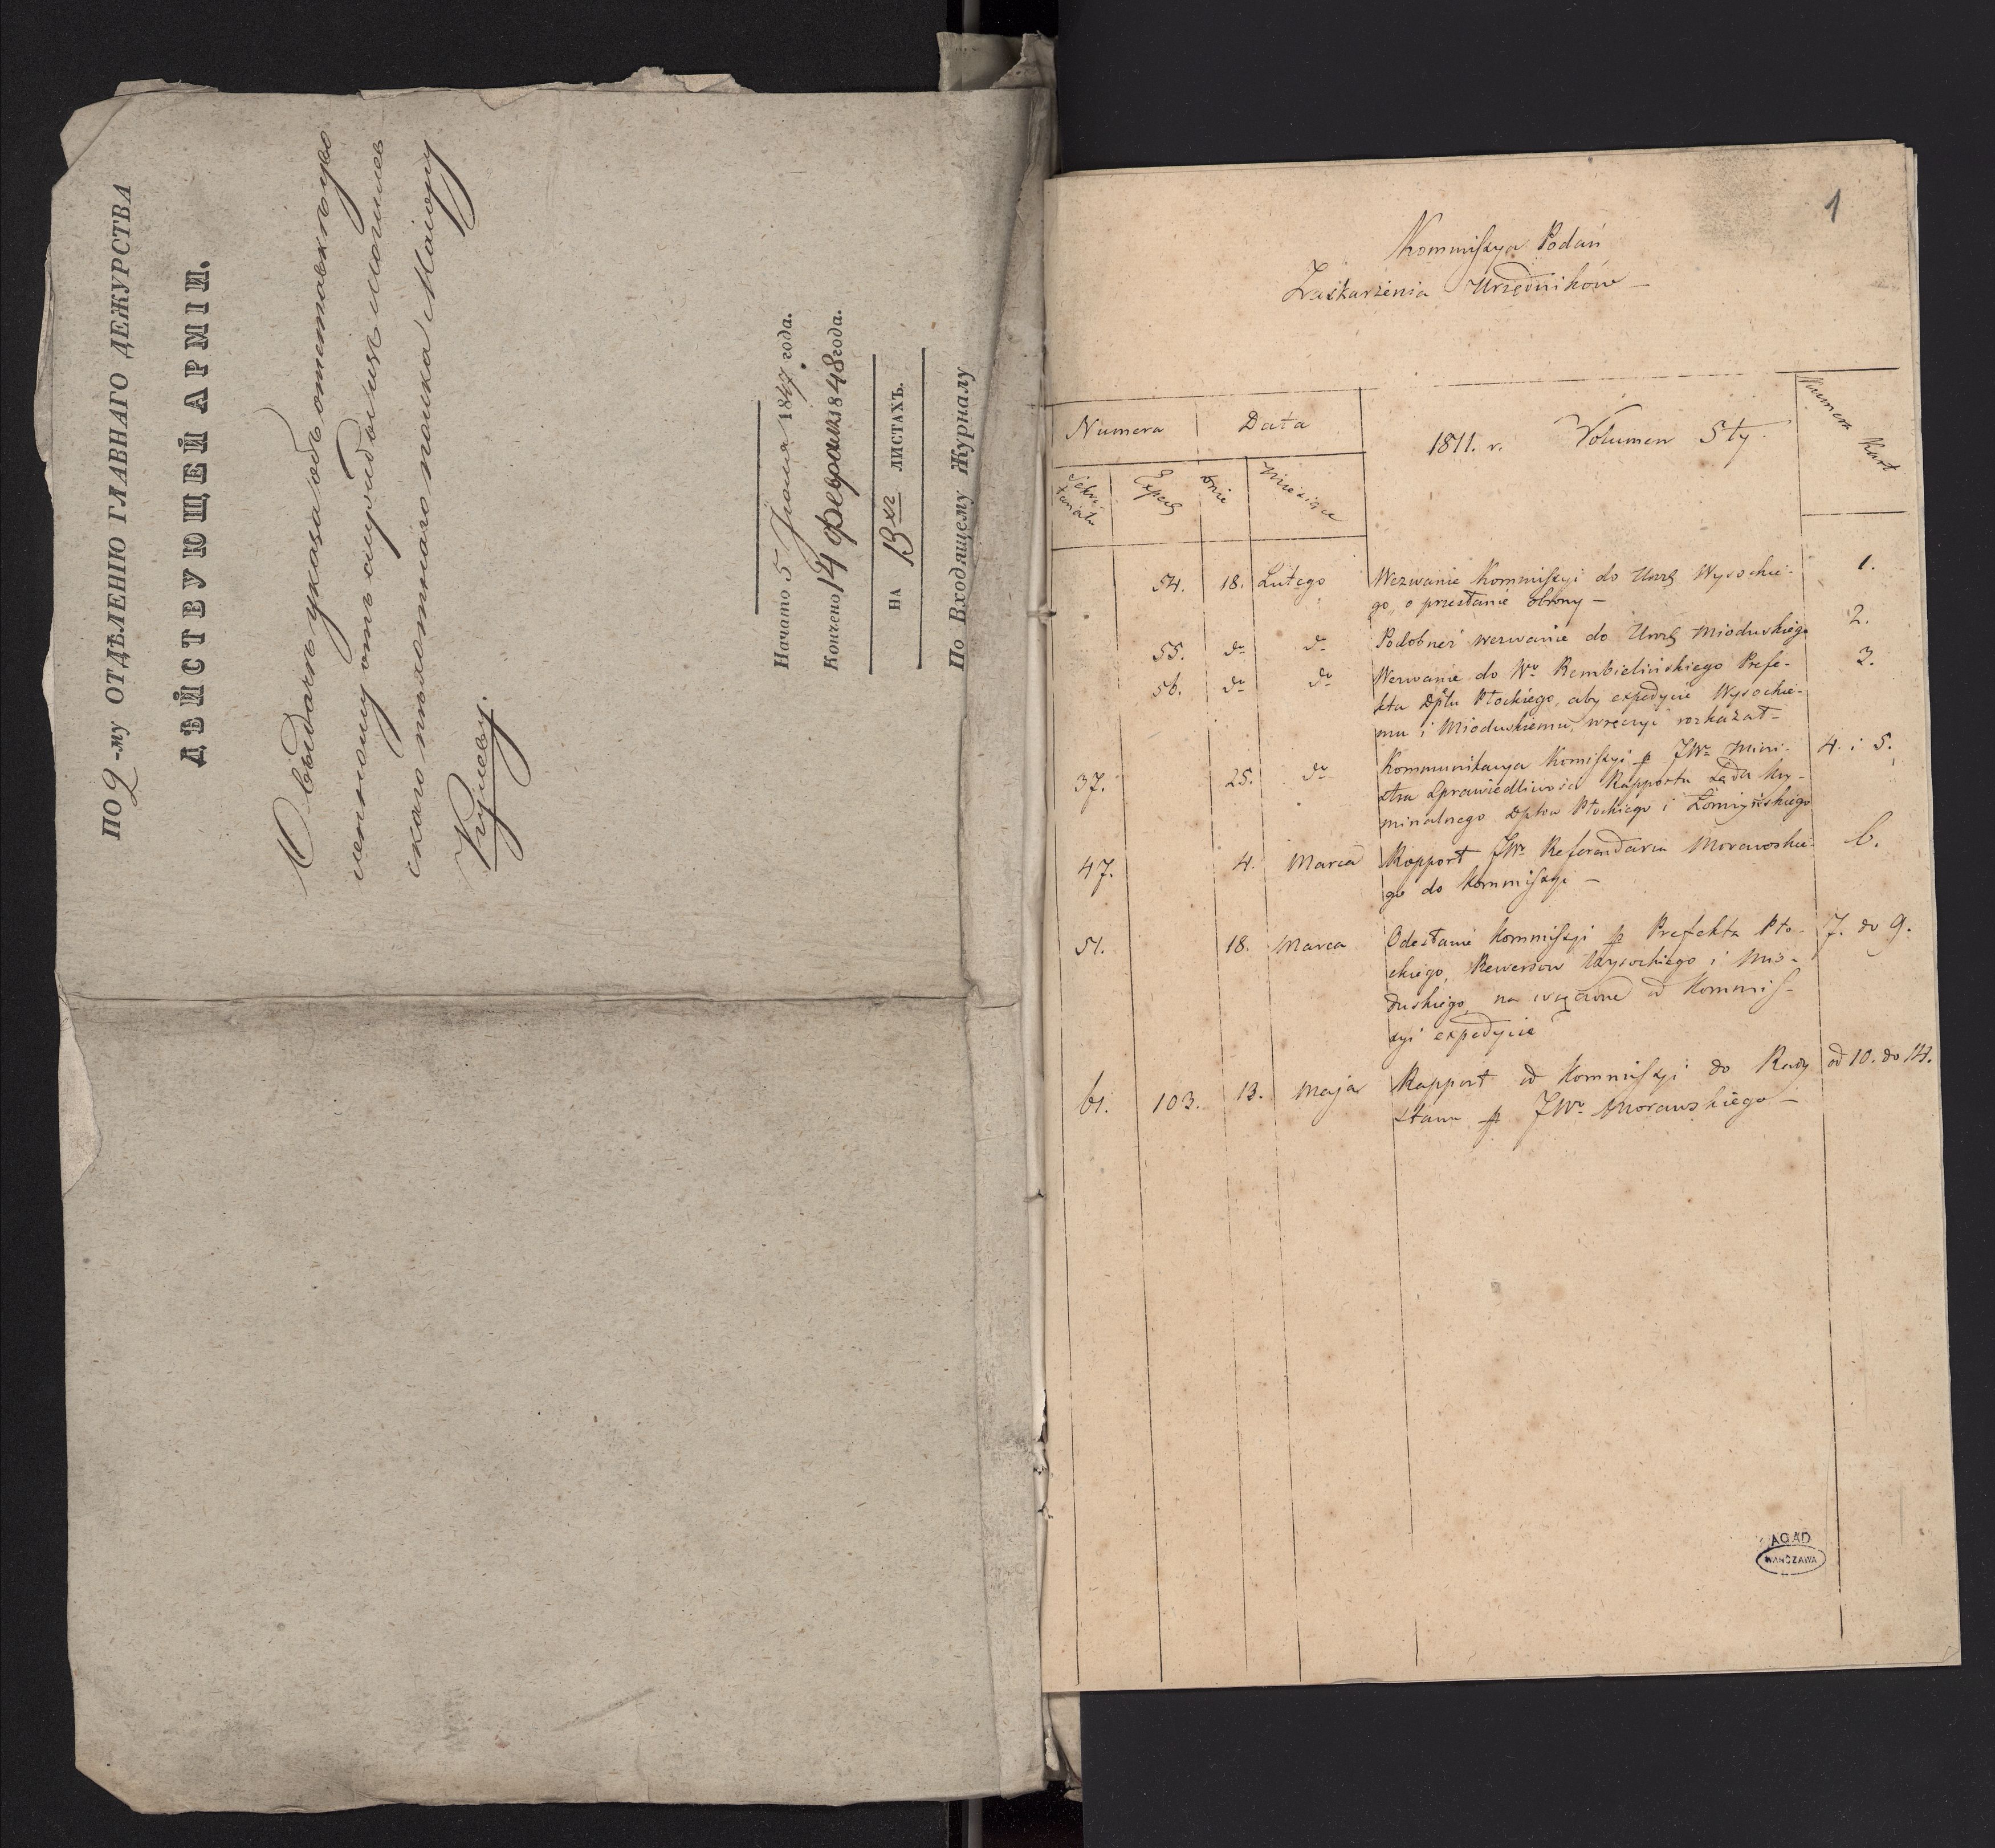 ПО 2-му ОТДѢЛЕНІЮ ГЛАВНАГО ДЕЖУРСТВА
ДѢЙСТВУЮЩЕЙ АРМІИ.
О выдачѣ указа объ отставкѣ уво
ленному отъ службы изъ Могилев
скаго пѣхотнаго полка Маіору
Начато 5 Іюня 1847 года.
Кончено 14 Февраля 1848 года.
НА 13 хъ ЛИСТАХЪ.
По Входящему Журналу
1
Kommiſsya Podań
Zaskarżenia Urzędników —
Numera Data 1811. r. Volumen 5ty. Numera Kart
Expedy Dnie Miesiące
54. 18. Lutego Wezwanie Kommiſsyi do Urzę Wysockie- 1.
go, o przesłanie obrony —
55. do do Podobneż wezwanie do Urzę Mioduskiego 2.
56. do do Wezwanie do Wo Rembielińskiego Prefe- 3.
kta Dptu Płockiego, aby expedycie Wysockie-
mu i Mioduskiemu, wręczyć rozkazał —
37. 25. do Kommunikacya Komiſsyi p JWo Mini- 4. i 5.
stra Sprawiedliwości Rapportu Sądu Kry-
minalnego Dptow Płockiego i Łomżyńskiego
47. 4. Marca Rapport JWo Referendarza Morawskie- 6.
go do Kommiſsyi —
51. 18. Marca Odesłanie Kommiſsyi p Prefekta Pło- 7. do 9.
ckiego, Rewersow Wysockiego i Mio-
duskiego, na wręczone od Kommiſ-
syi expedycie
61. 103. 13. Maja Rapport od Kommiſsyi do Rady od 10. do 14.
stanu p JWo Morawskiego —
AGAD
WARSZAWA